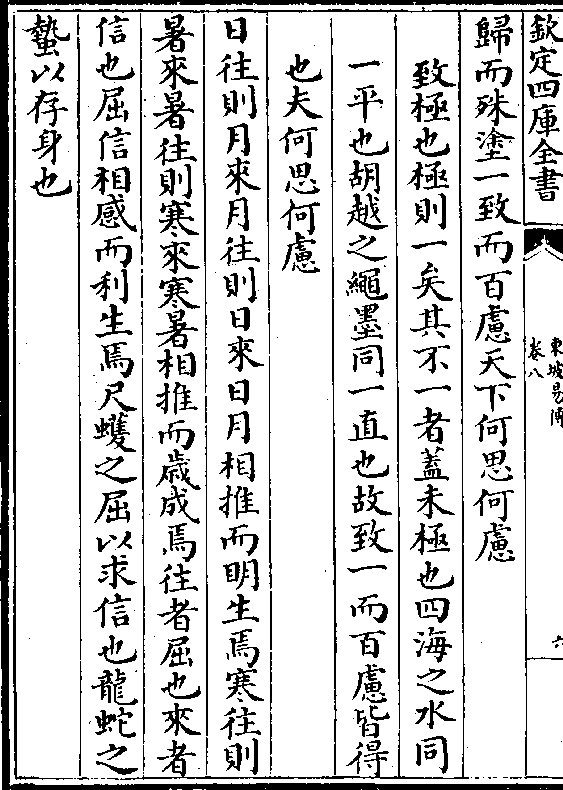 欽定四庫全書
東坡易傳
卷八
六
歸而殊塗一致而百慮天下何思何慮
致極也極則一矣其不一者蓋未極也四海之水同
一平也胡越之繩墨同一直也故致一而百慮皆得
也夫何思何慮
日往則月來月往則日來日月相推而明生焉寒往則
暑來暑往則寒來寒暑相推而歲成焉往者屈也來者
信也屈信相感而利生焉尺蠖之屈以求信也龍蛇之
蟄以存身也